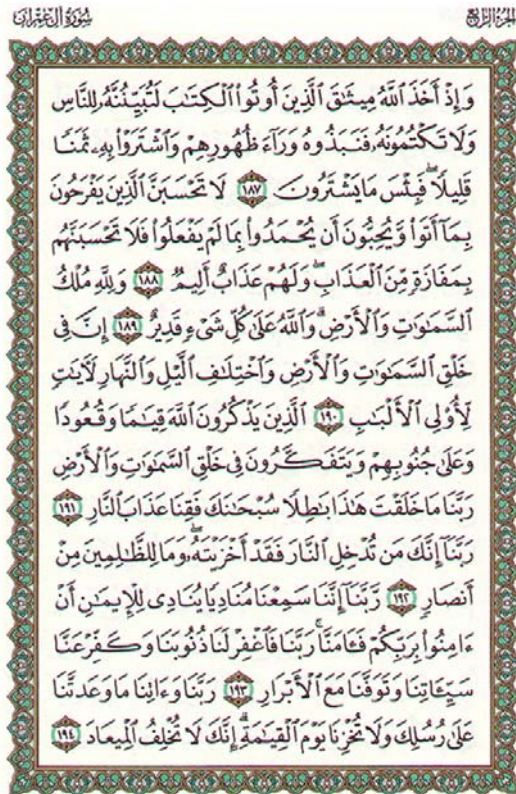 سُورَةُ آلِ عِمۡرَانَ
الجُزءُ الرَّابِعُ
وَإِذۡ أَخَذَ ٱللَّهُ مِيثَٰقَ ٱلَّذِينَ أُوتُواْ ٱلۡكِتَٰبَ لَتُبَيِّنُنَّهُۥ لِلنَّاسِ
وَلَا تَكۡتُمُونَهُۥ فَنَبَذُوهُ وَرَآءَ ظُهُورِهِمۡ وَٱشۡتَرَوۡاْ بِهِۦ ثَمَنٗا
قَلِيلٗاۖ فَبِئۡسَ مَا يَشۡتَرُونَ ١٨٧ لَا تَحۡسَبَنَّ ٱلَّذِينَ يَفۡرَحُونَ
بِمَآ أَتَواْ وَّيُحِبُّونَ أَن يُحۡمَدُواْ بِمَا لَمۡ يَفۡعَلُواْ فَلَا تَحۡسَبَنَّهُم
بِمَفَازَةٖ مِّنَ ٱلۡعَذَابِۖ وَلَهُمۡ عَذَابٌ أَلِيمٞ ١٨٨ وَلِلَّهِ مُلۡكُ
ٱلسَّمَٰوَٰتِ وَٱلۡأَرۡضِۗ وَٱللَّهُ عَلَىٰ كُلِّ شَيۡءٖ قَدِيرٌ ١٨٩ إِنَّ فِي
خَلۡقِ ٱلسَّمَٰوَٰتِ وَٱلۡأَرۡضِ وَٱخۡتِلَٰفِ ٱلَّيۡلِ وَٱلنَّهَارِ لَأٓيَٰتٖ
لِّأُوْلِي ٱلۡأَلۡبَٰبِ ١٩٠ ٱلَّذِينَ يَذۡكُرُونَ ٱللَّهَ قِيَٰمٗا وَقُعُودٗا
وَعَلَىٰ جُنُوبِهِمۡ وَيَتَفَكَّرُونَ فِي خَلۡقِ ٱلسَّمَٰوَٰتِ وَٱلۡأَرۡضِ
رَبَّنَا مَا خَلَقۡتَ هَٰذَا بَٰطِلٗا سُبۡحَٰنَكَ فَقِنَا عَذَابَ ٱلنَّارِ ١٩١
رَبَّنَآ إِنَّكَ مَن تُدۡخِلِ ٱلنَّارَ فَقَدۡ أَخۡزَيۡتَهُۥۖ وَمَا لِلظَّٰلِمِينَ مِنۡ
أَنصَارٖ ١٩٢ رَّبَّنَآ إِنَّنَا سَمِعۡنَا مُنَادِيٗا يُنَادِي لِلۡإِيمَٰنِ أَنۡ
ءَامِنُواْ بِرَبِّكُمۡ فَـَٔامَنَّاۚ رَبَّنَا فَٱغۡفِرۡ لَنَا ذُنُوبَنَا وَكَفِّرۡ عَنَّا
سَيِّـَٔاتِنَا وَتَوَفَّنَا مَعَ ٱلۡأَبۡرَارِ ١٩٣ رَبَّنَا وَءَاتِنَا مَا وَعَدتَّنَا
عَلَىٰ رُسُلِكَ وَلَا تُخۡزِنَا يَوۡمَ ٱلۡقِيَٰمَةِۗ إِنَّكَ لَا تُخۡلِفُ ٱلۡمِيعَادَ ١٩٤